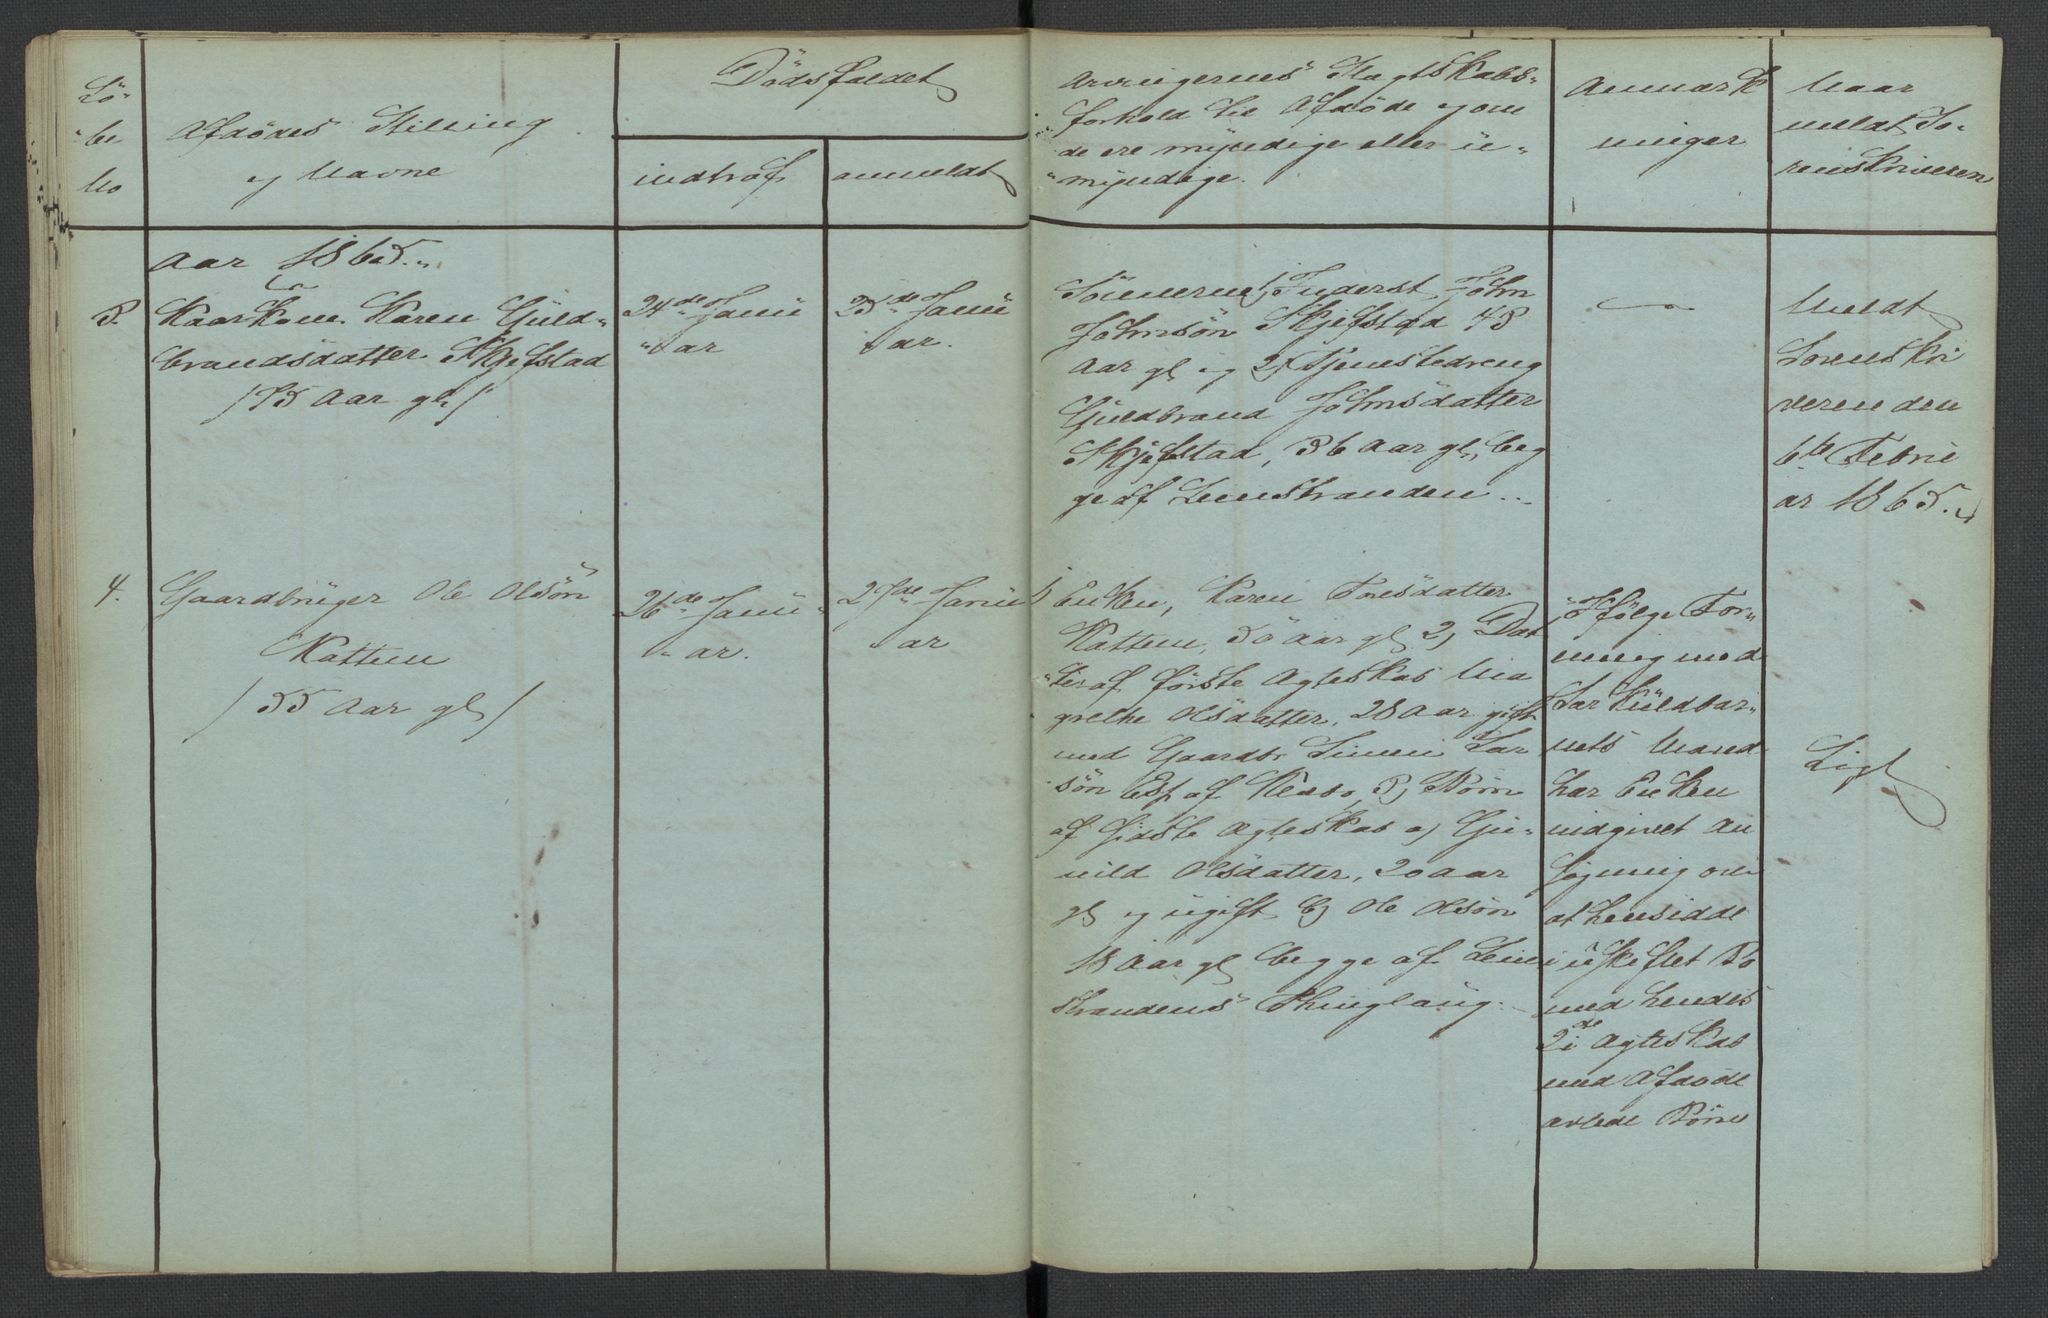 Lö-
be
No
Afdödes Stilling
og Navne
Dödsfaldet
indtraf
anmeldt
Arvingernes Slagtskabs-
forhold til Afdöde og om
de ere myndige eller u-
myndige.
Anmærk
ninger
Naar
meldt So-
renskriveren
Aar 1865.
3.
Kaarkone Karen Guld-
brandsdatter Skjefstad
/75 Aar gl/
24de Janu
ar
25de Janu
ar.
Sönnerne 1, Inderst John
Johnsön Skjefstad 43
Aar gl og 2, Tjenestedreng
Guldbrand Johnsdatter
Skjefstad, 36 Aar gl, beg
ge af Leinstranden.
Meldt
Sorenskri
veren den
6te Febru
ar 1865.
4.
Gaardbruger Ole Olsön
Kattem
/55 Aar gl/
26de Janu
ar.
27de Janu
ar
1, Enken, Karen Toresdatter
Kattem, 50 Aar gl 2, Dat
ter af förste Ægteskab Ma
grethe Olsdatter, 28 Aar gift
med Gaardbr Simen Lar
sön Esp af Klæbo, 3, Börn
af sidste Ægteskab a, Gu-
nild Olsdatter, 20 Aar
gl og ugift b, Ole Olsön
18 Aar gl begge af Lein
strandens Thinglaug.
Ifölge For-
ening med
Særkuldbar-
nets Mand
har Enken
indgivet An
sögning om
at hensidde
i uskiftet Bo
med hendes
2det Ægteskab
med Afdöde
avlede Börn
Ligl